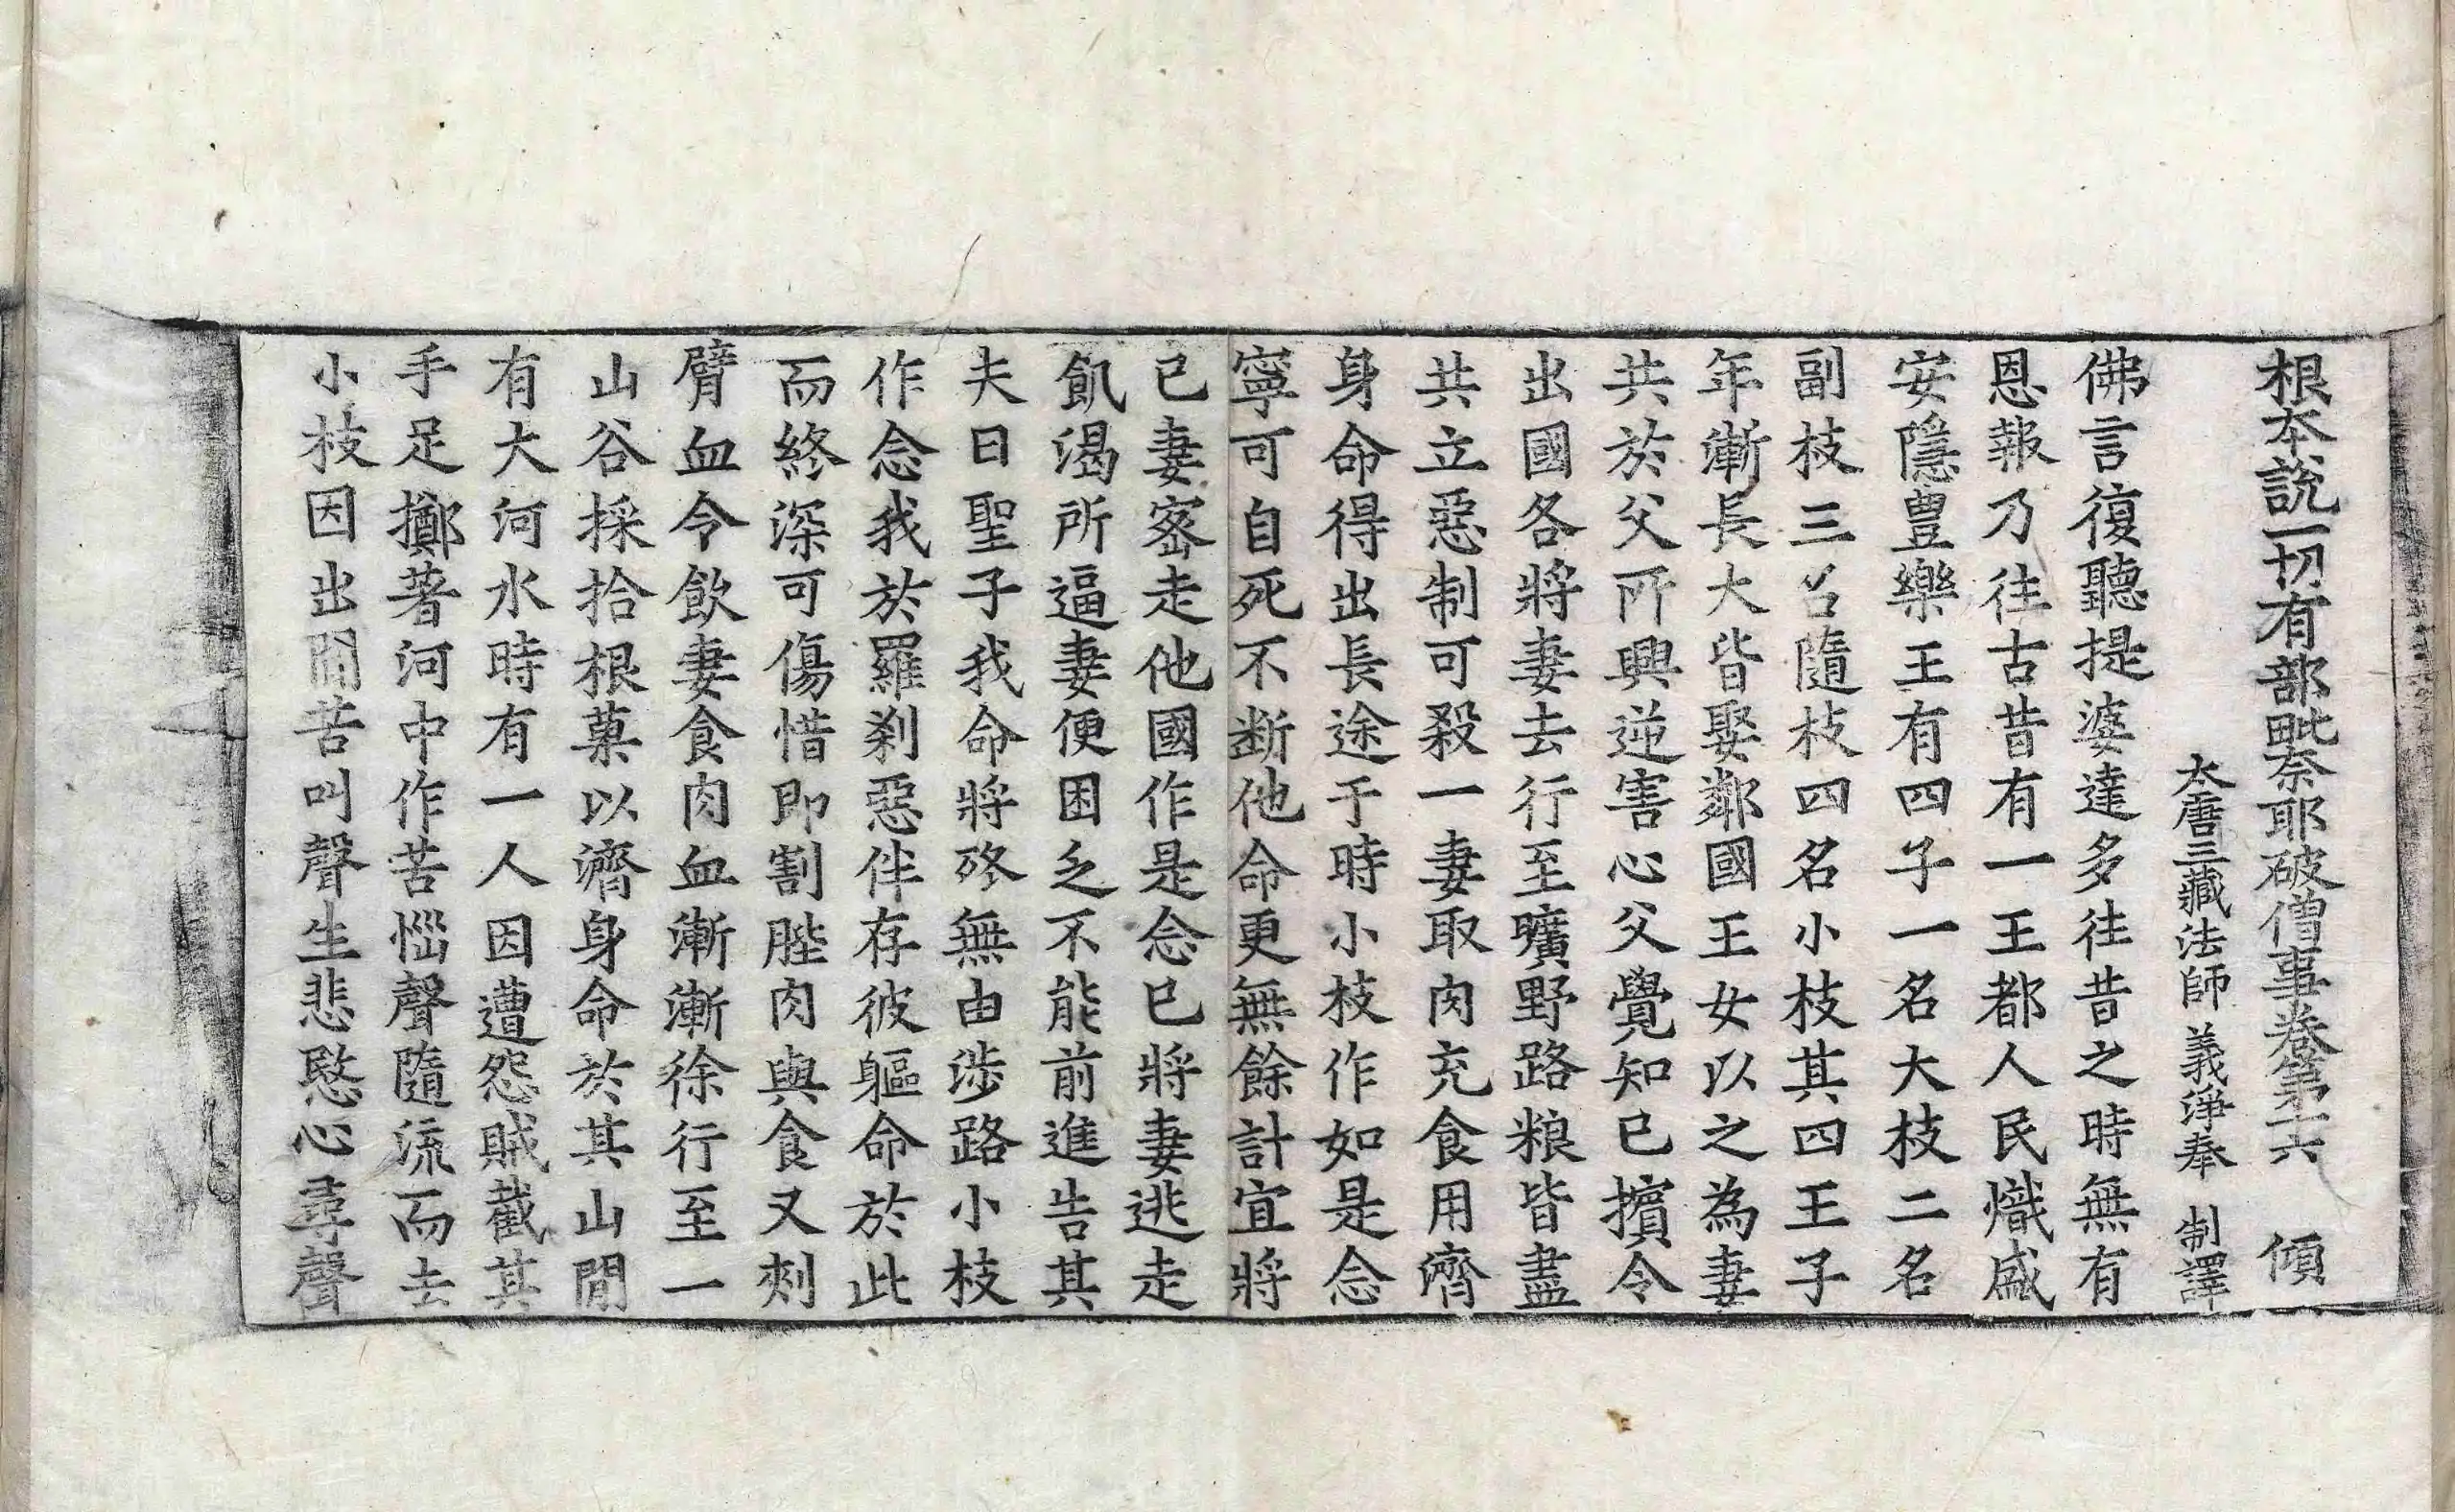 根本說一切有部毗奈耶破僧事卷第十六 傾
大唐三藏法師 義淨奉 制譯
佛言復聽提婆達多往昔之時無有
恩報乃往古昔有一王都人民熾盛
安隱豊樂王有四子一名大枝二名
副枝三名隨枝四名小枝其四王子
年漸長大皆娶鄰國王女以之為妻
共於父所興逆害心父覺知已擯令
出國各將妻去行至曠野路粮皆盡
共立惡制可殺一妻取肉充食用濟
身命得出長途于時小枝作如是念
寧可自死不断他命更無餘計宜將
已妻密走他國作是念已將妻逃走
飢渴所逼妻便困乏不能前進告其
夫曰聖子我命將終無由涉路小枝
作念我於羅刹惡伴存彼軀命於此
而終深可傷惜即割䏶肉與食又刺
臂血令飲妻食肉血漸漸徐行至一
山谷採拾根菓以濟身命於其山閒
有大河水時有一人因遭怨賊截其
手足擲著河中作苦惱聲隨流而去
小枝因出聞苦叫聲生悲愍心尋聲